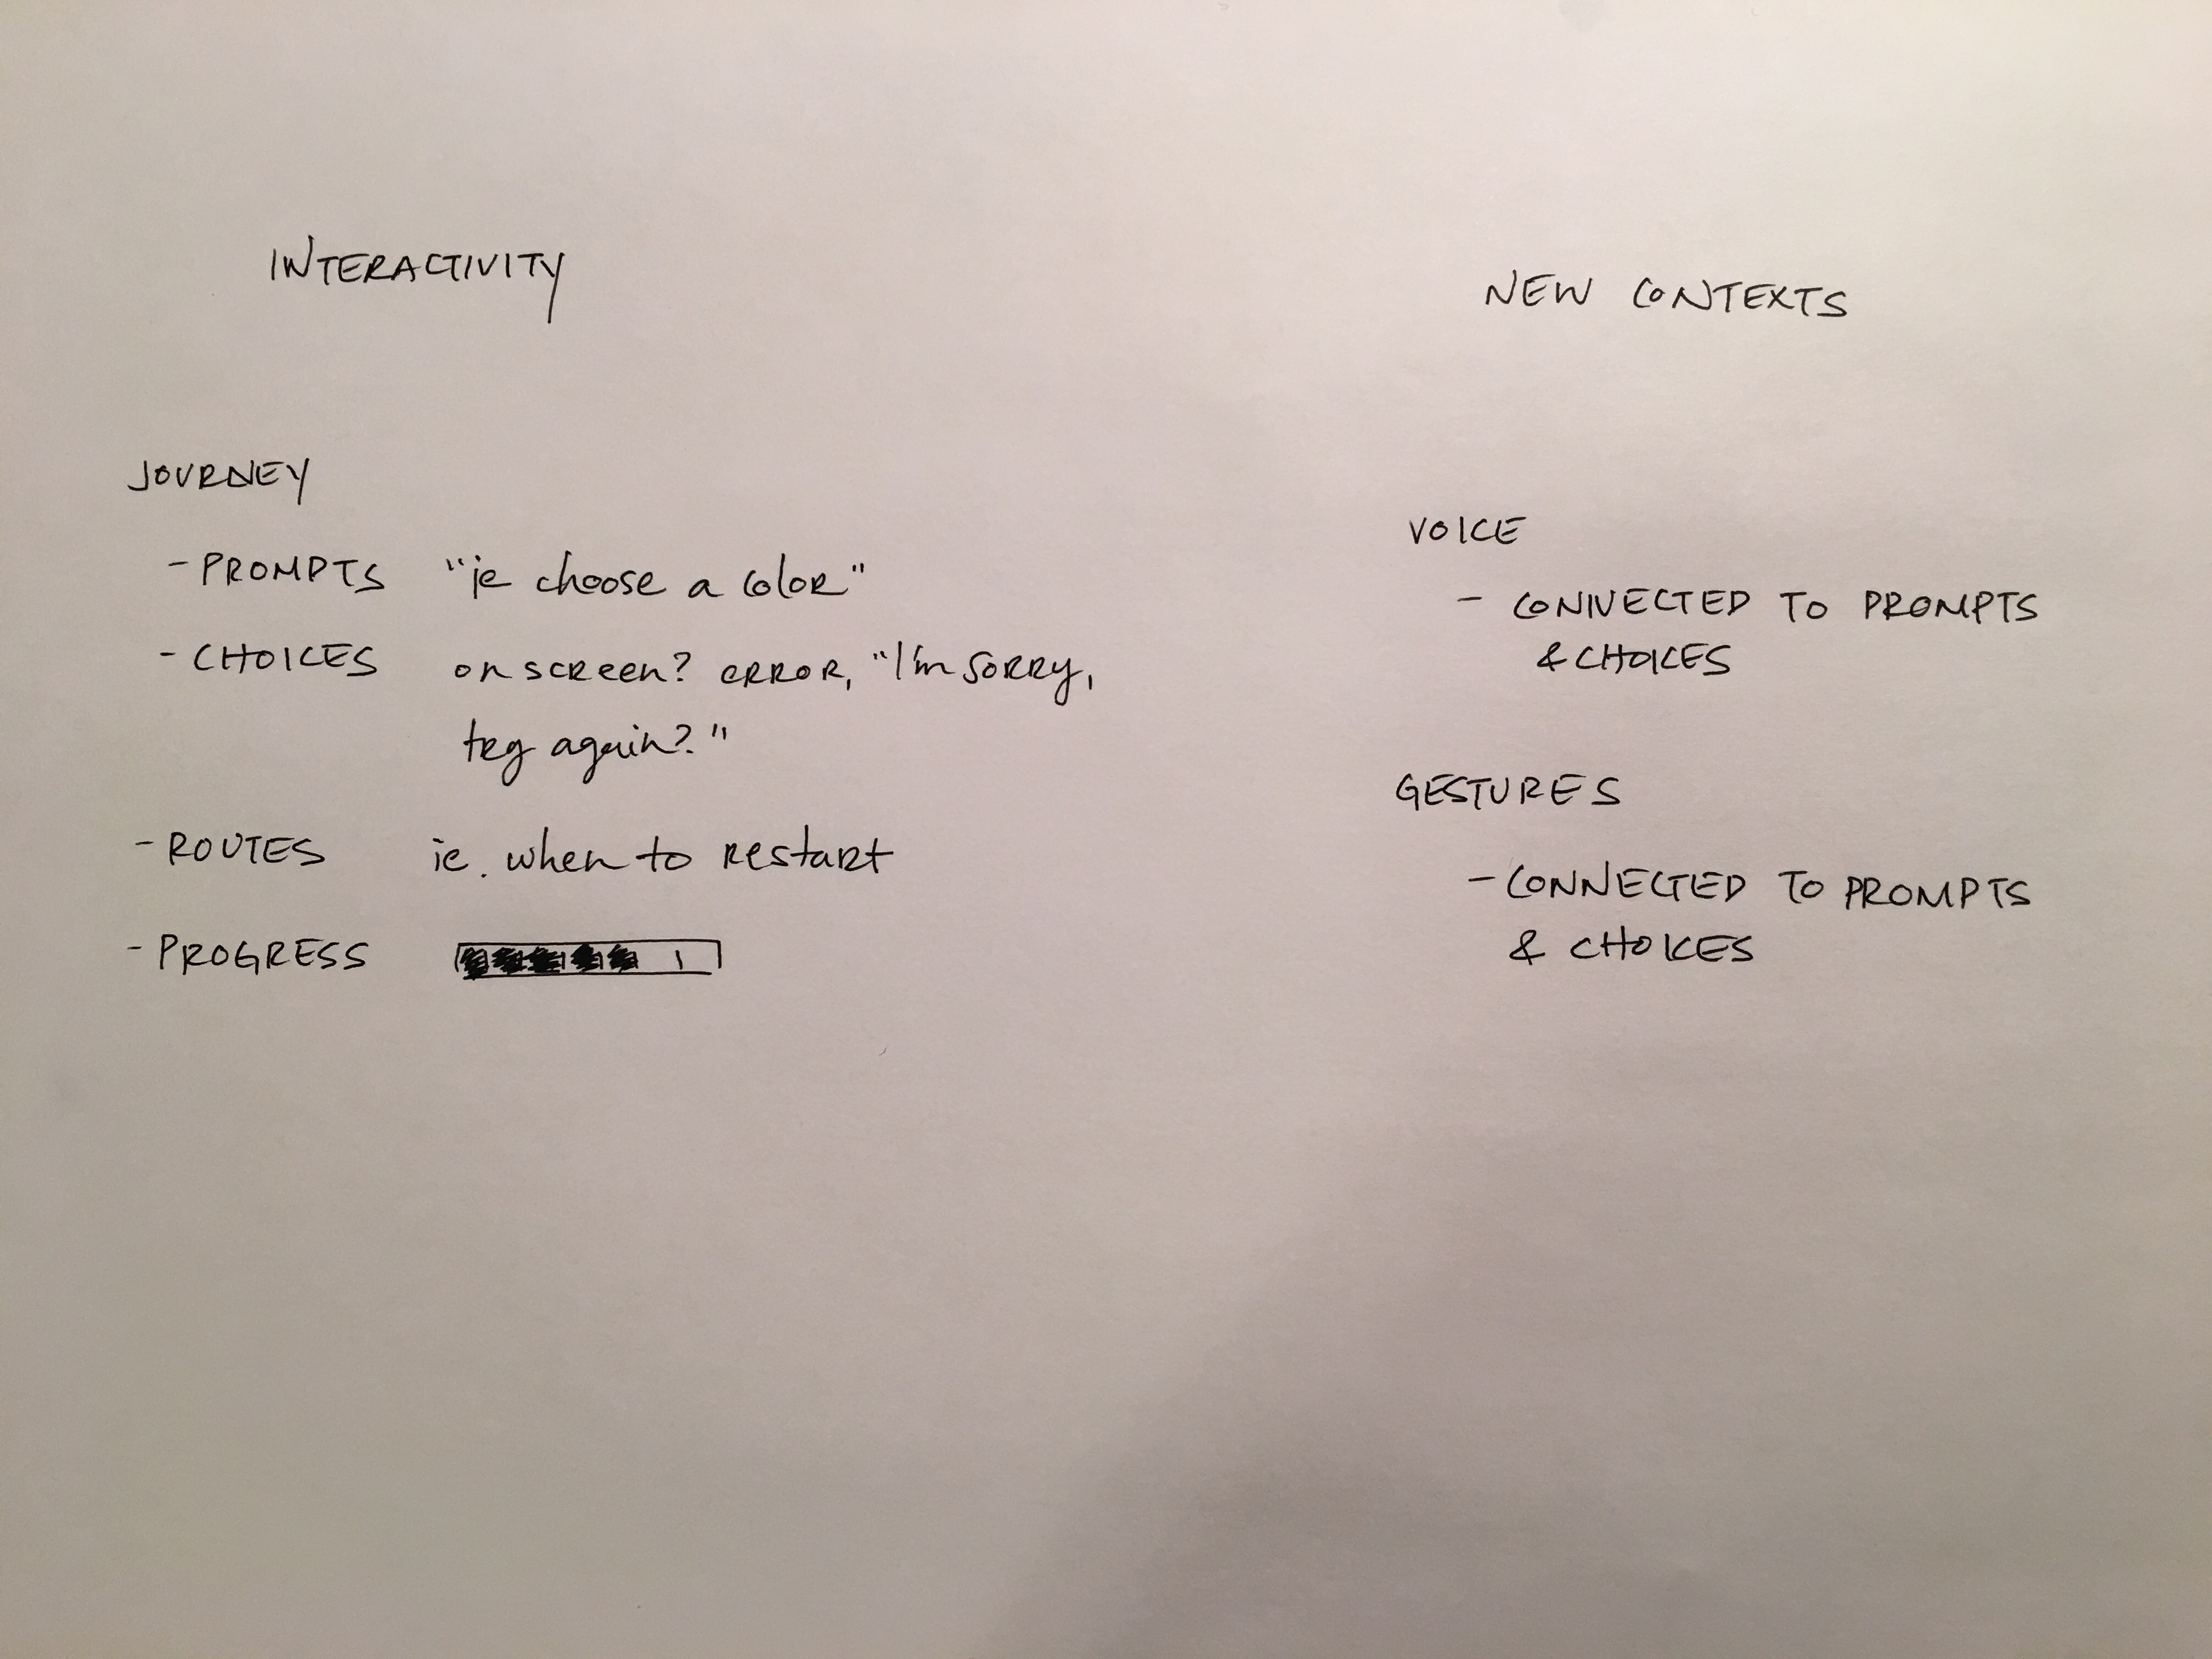 INTERACTIVITY
JOURNEY
- PROMPTS "ie choose a color"
- CHOICES on screen? error, "I'm sorry,
try again?"
- ROUTES ie. when to restart
- PROGRESS
NEW CONTEXTS
VOICE
- CONNECTED TO PROMPTS
& CHOICES
GESTURES
- CONNECTED TO PROMPTS
& CHOICES